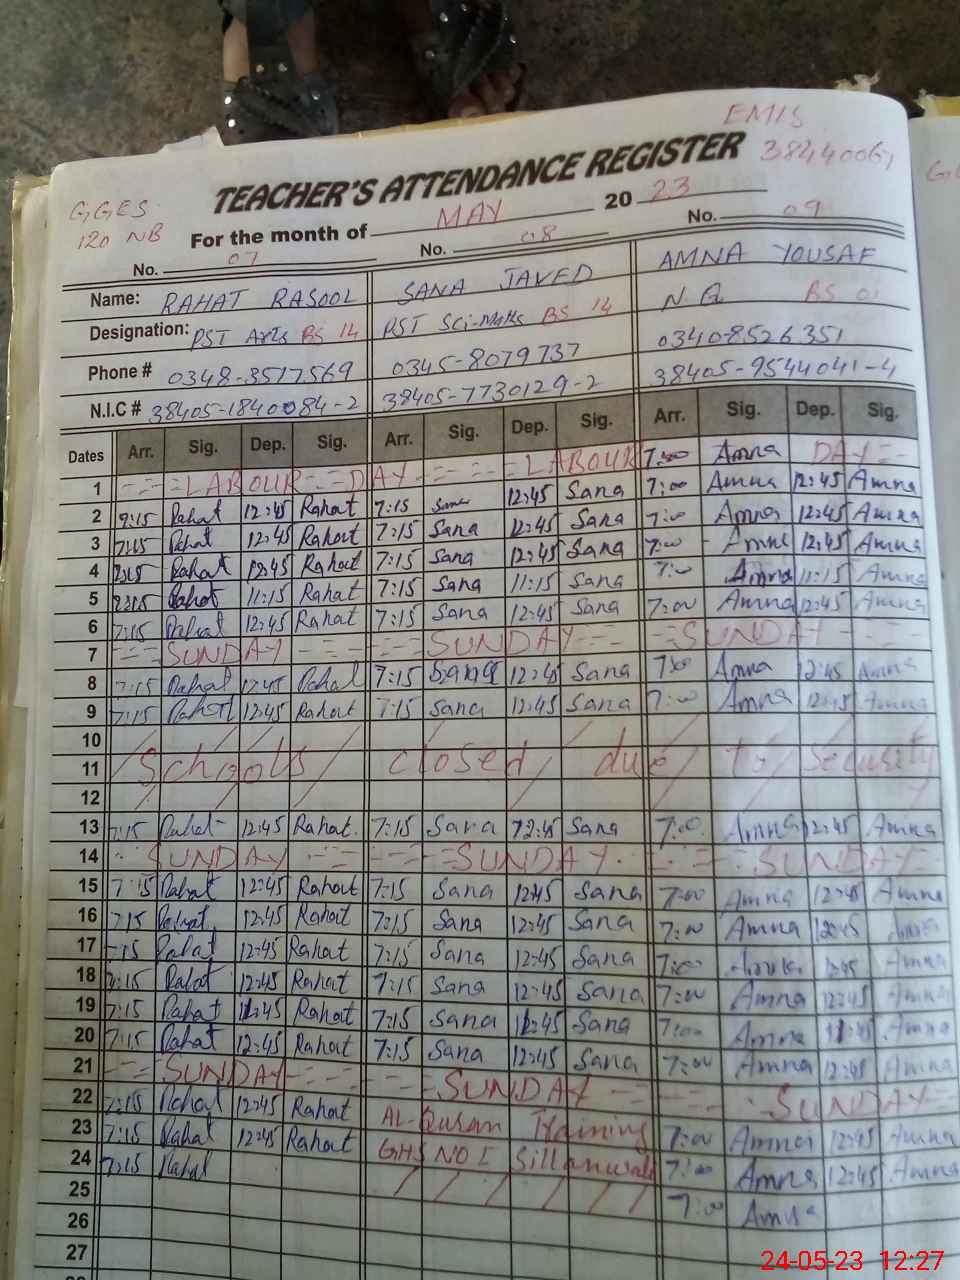 EMIS
TEACHER'S ATTENDANCE REGISTER 38440061
GGES
120 NB
For the month of MAY 2023
No. 07 No. 08 No. 09
Name: RAHAT RASOOL SANA JAVED AMNA YOUSAF
Designation: PST Arts BS 14 PST Sci-Maths BS 14 N.Q BS 01
Phone # 0348-3517569 0345-8079737 0340-8526351
N.I.C # 38405-1840084-2 38405-7730129-2 38405-9544041-4
Dates Arr. Sig. Dep. Sig. Arr. Sig. Dep. Sig. Arr. Sig. Dep. Sig.
1 LABOUR DAY LABOUR 7:00 Amna DAY
2 7:15 Rahat 12:45 Rahat 7:15 Sana 12:45 Sana 7:00 Amna 12:45 Amna
3 7:15 Rahat 12:45 Rahat 7:15 Sana 12:45 Sana 7:00 Amna 12:45 Amna
4 7:15 Rahat 12:45 Rahat 7:15 Sana 12:45 Sana 7:00 Amna 12:45 Amna
5 7:15 Rahat 11:15 Rahat 7:15 Sana 11:15 Sana 7:00 Amna 11:15 Amna
6 7:15 Rahat 12:45 Rahat 7:15 Sana 12:45 Sana 7:00 Amna 12:45 Amna
7 SUNDAY SUNDAY SUNDAY
8 7:15 Rahat 12:45 Rahat 7:15 Sana 12:45 Sana 7:00 Amna 12:45 Amna
9 7:15 Rahat 12:45 Rahat 7:15 Sana 12:45 Sana 7:00 Amna 12:45 Amna
10
11 Schools closed due to Security
12
13 7:15 Rahat 12:45 Rahat 7:15 Sana 12:45 Sana 7:00 Amna 12:45 Amna
14 SUNDAY SUNDAY SUNDAY
15 7:15 Rahat 12:45 Rahat 7:15 Sana 12:45 Sana 7:00 Amna 12:45 Amna
16 7:15 Rahat 12:45 Rahat 7:15 Sana 12:45 Sana 7:00 Amna 12:45 Amna
17 7:15 Rahat 12:45 Rahat 7:15 Sana 12:45 Sana 7:00 Amna 12:45 Amna
18 7:15 Rahat 12:45 Rahat 7:15 Sana 12:45 Sana 7:00 Amna 12:45 Amna
19 7:15 Rahat Rahat 7:15 Sana Sana 7:00 Amna Amna
20 7:15 Rahat 12:45 Rahat 7:15 Sana 12:45 Sana 7:00 Amna 12:45 Amna
21 SUNDAY SUNDAY SUNDAY
22 7:15 Rahat 12:45 Rahat AL-Quran Training 7:00 Amna 12:45 Amna
23 7:15 Rahat 12:45 Rahat GHS NO 1 Sillanwali 7:00 Amna 12:45 Amna
24 7:15 Rahat 7:00 Amna
25
26
27
24-05-23 12:27